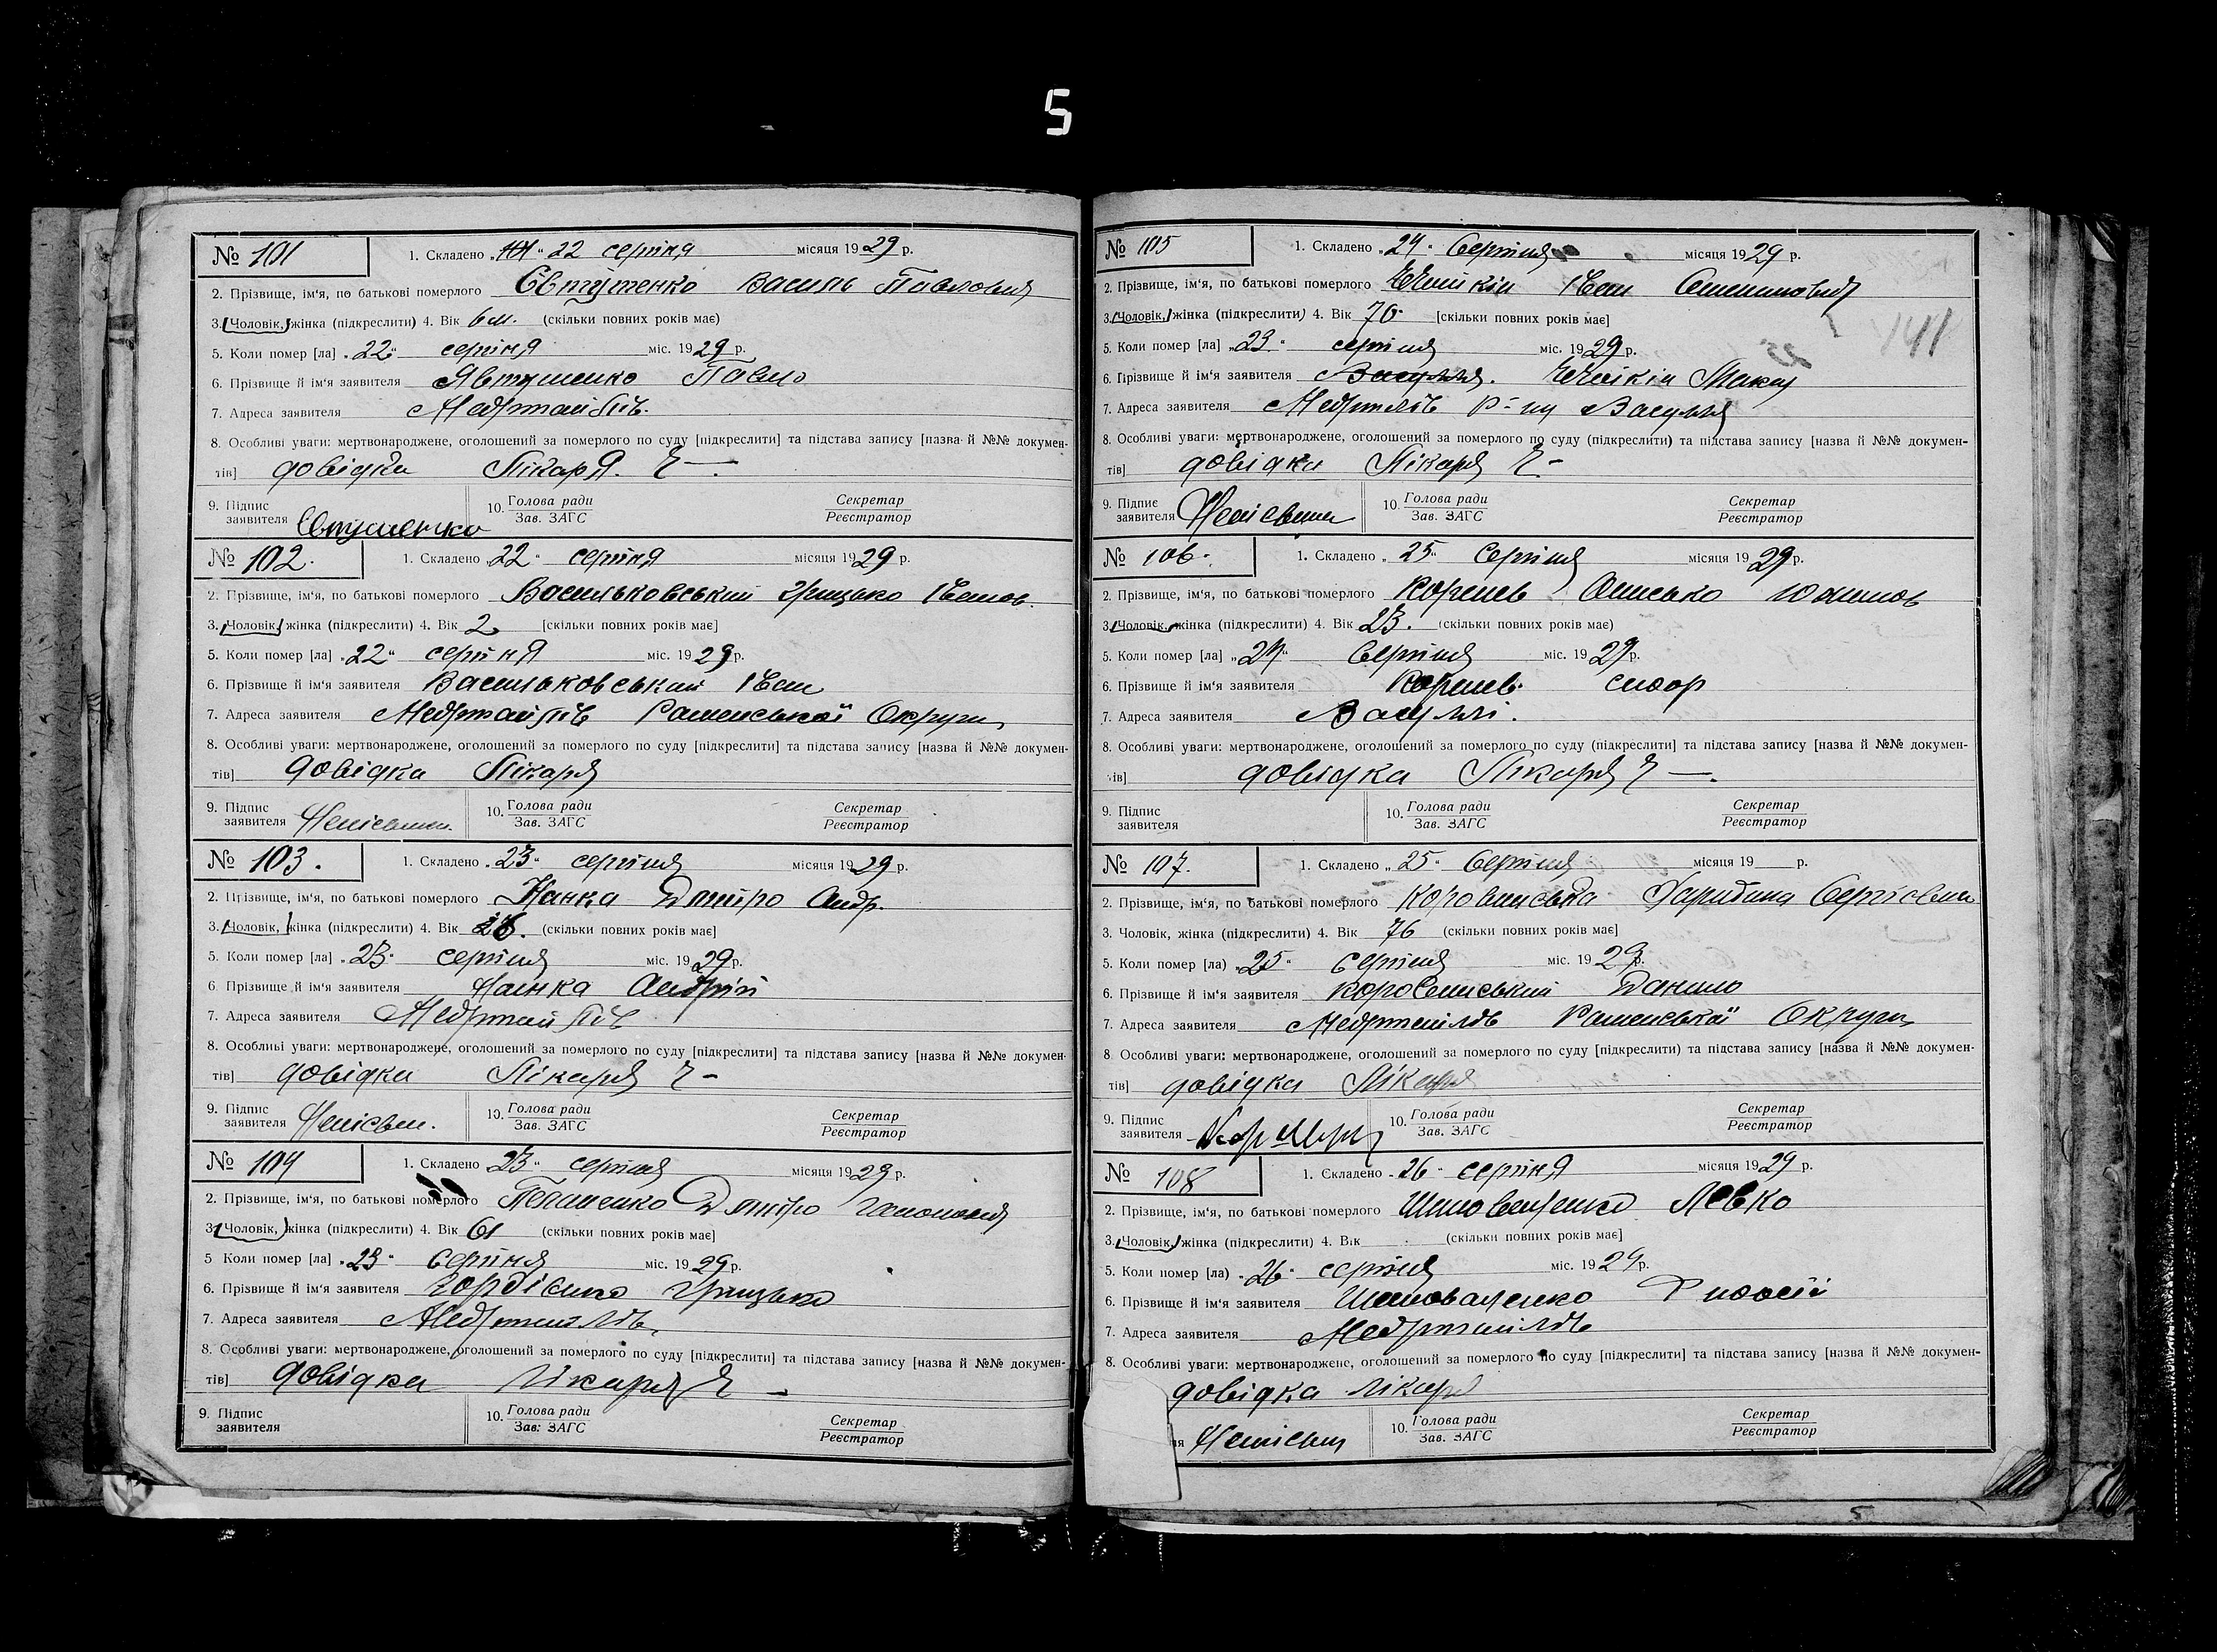 5
№ 101 1. Складено „ 22 серпня місяця 1929 р.
2. Прізвище, ім'я, по батькові померлого Євтушенко Василь Павлович
3. Чоловік, жінка (підкреслити) 4. Вік 6 м. (скільки повних років має)
5. Коли помер [ла] „22“ серпня міс. 1929 р.
6. Прізвище й ім'я заявителя Явтушенко Павло
7. Адреса заявителя
8. Особливі уваги: мертвонароджене, оголошений за померлого по суду [підкреслити] та підстава запису [назва й №№ докумен-
тів] довідка Лікаря
9. Підпис заявителя Євтушенко 10. Голова ради Зав. ЗАГС Секретар Реєстратор
№ 102. 1. Складено „22“ серпня місяця 1929 р.
2. Прізвище, ім'я, по батькові померлого Васильковський Грицько Іванов.
3. Чоловік, жінка (підкреслити) 4. Вік 2 [скільки повних років має]
5. Коли помер [ла] „22“ серпня міс. 1929 р.
6. Прізвище й ім'я заявителя Васильковський Іван
7. Адреса заявителя Роменської Округи
8. Особливі уваги: мертвонароджене, оголошений за померлого по суду [підкреслити] та підстава запису [назва й №№ докумен-
тів] довідка Лікаря
9. Підпис заявителя 10. Голова ради Зав. ЗАГС Секретар Реєстратор
№ 103. 1. Складено „23“ серпня місяця 1929 р.
2. Прізвище, ім'я, по батькові померлого Нанка Дмитро Андр.
3. Чоловік, жінка (підкреслити) 4. Вік (скільки повних років має]
5. Коли помер [ла] „23“ серпня міс. 1929 р.
6. Прізвище й ім'я заявителя Нанка Андрій
7. Адреса заявителя
8. Особливі уваги: мертвонароджене, оголошений за померлого по суду [підкреслити] та підстава запису [назва й №№ докумен-
тів] довідка Лікаря
9. Підпис заявителя 10. Голова ради Зав. ЗАГС Секретар Реєстратор
№ 104 1. Складено „23“ серпня місяця 1929 р.
2. Прізвище, ім'я, по батькові померлого Дмитро
3. Чоловік, жінка (підкреслити) 4. Вік 61 (скільки повних років має]
5 Коли помер [ла] „23“ серпня міс. 1929 р.
6. Прізвище й ім'я заявителя Гордієнко Грицько
7. Адреса заявителя
8. Особливі уваги: мертвонароджене, оголошений за померлого по суду [підкреслити] та підстава запису [назва й №№ докумен-
тів] довідка Лікаря
9. Підпис заявителя 10. Голова ради Зав: ЗАГС Секретар Реєстратор
№ 105 1. Складено „24“ Серпня місяця 1929 р.
2. Прізвище, ім'я, по батькові померлого Іван
3. Чоловік, жінка (підкреслити) 4. Вік 76 [скільки повних років має]
141
5. Коли помер [ла] „23“ серпня міс. 1929 р.
6. Прізвище й ім'я заявителя Макар
7. Адреса заявителя
8. Особливі уваги: мертвонароджене, оголошений за померлого по суду (підкреслити) та підстава запису [назва й №№ докумен-
тів] довідка Лікаря
9. Підпис заявителя 10. Голова ради Зав. ЗАГС Секретар Реєстратор
№ 106. 1. Складено „25“ Серпня місяця 1929 р.
2. Прізвище, ім'я, по батькові померлого Коренев Юхимов
3. Чоловік, жінка (підкреслити) 4. Вік 23. (скільки повних років має)
5. Коли помер [ла] „24“ Серпня міс. 1929 р.
6. Прізвище й ім'я заявителя Коренев Сидор
7. Адреса заявителя
8. Особливі уваги: мертвонароджене, оголошений за померлого по суду (підкреслити] та підстава запису [назва й №№ докумен-
тів] довідка Лікаря
9. Підпис заявителя 10. Голова ради Зав. ЗАГС Секретар Реєстратор
№ 107. 1. Складено „25“ Серпня місяця 19 р.
2. Прізвище, ім'я, по батькові померлого Сергієвна
3. Чоловік, жінка (підкреслити) 4. Вік 76 (скільки повних років має]
5. Коли помер [ла) „25“ серпня міс. 1929 р.
6. Прізвище й ім'я заявителя Данило
7. Адреса заявителя Роменської Округи
8 Особливі уваги: мертвонароджене, оголошений за померлого по суду [підкреслити) та підстава запису [назва й №№ докумен-
тів] довідка Лікаря
9. Підпис заявителя 10. Голова ради Зав. ЗАГС Секретар Реєстратор
№ 108 1. Складено „26“ серпня місяця 1929 р.
2. Прізвище, ім'я, по батькові померлого Левко
3. Чоловік, жінка (підкреслити) 4. Вік (скільки повних років має]
5. Коли помер [ла) „26“ серпня міс. 1929 р.
6. Прізвище й ім'я заявителя Шаповаленко
7. Адреса заявителя
8. Особливі уваги: мертвонароджене, оголошений за померлого по суду [підкреслити) та підстава запису [назва й №№ докумен-
довідка лікаря
10. Голова ради Зав. ЗАГС Секретар Реєстратор
5